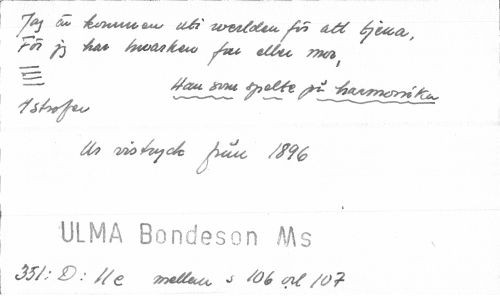 Jag är kommen uti werlden för att tjena,
För jg har hwarken far eller mor,
Han som spelte på harmonika
7 strofer
Ur vistryck från 1896
ULMA Bondeson Ms
351: D: 11 c mellan s 106 och 107